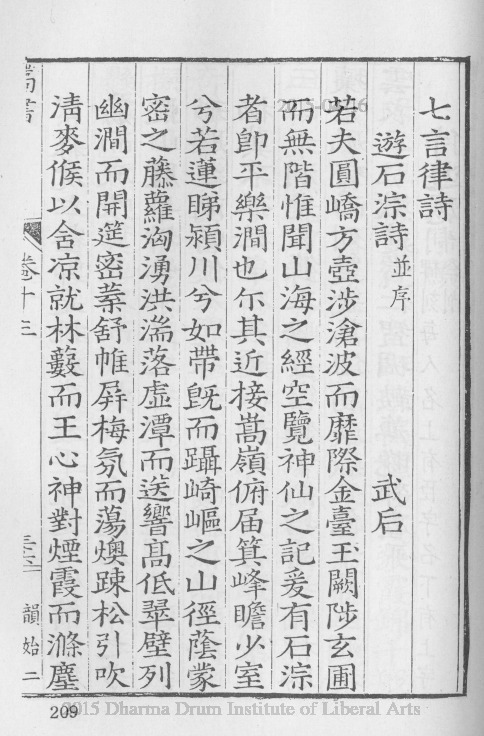 七言律詩
遊石淙詩並序 武后
若夫圓嶠方壺涉滄波而靡際金臺玉闕陟玄圃
而無階惟聞山海之經空覽神仙之記爰有石淙
者卽平樂澗也尓其近接嵩嶺俯届箕峰瞻少室
兮若蓮睇潁川兮如帶旣而躡崎嶇之山徑蔭蒙
密之藤蘿洶湧洪湍落虛潭而送響髙低翠壁列
幽澗而開筵密葉舒帷屛梅氛而蕩燠踈松引吹
淸麥候以含凉就林藪而王心神對煙霞而滌塵
嵩書
卷十三
韻始二
209
2015 Dharma Drum Institute of Liberal Arts